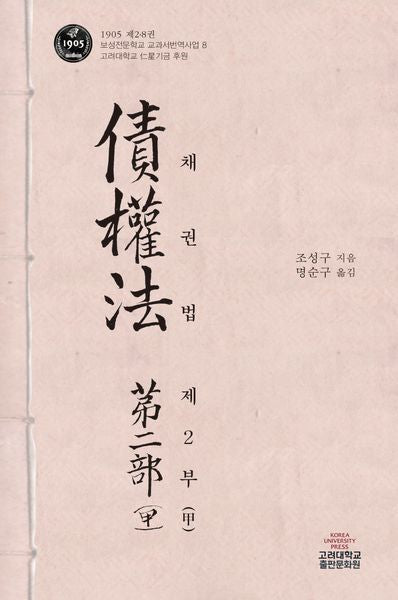 1905
1905 제2·8권
보성전문학교 교과서번역사업 8
고려대학교 仁星기금 후원
債權法
第二部
(甲)
채권법 제2부(甲)
조성구 지음
명순구 옮김
KOREA
UNIVERSITY
PRESS
고려대학교
출판문화원